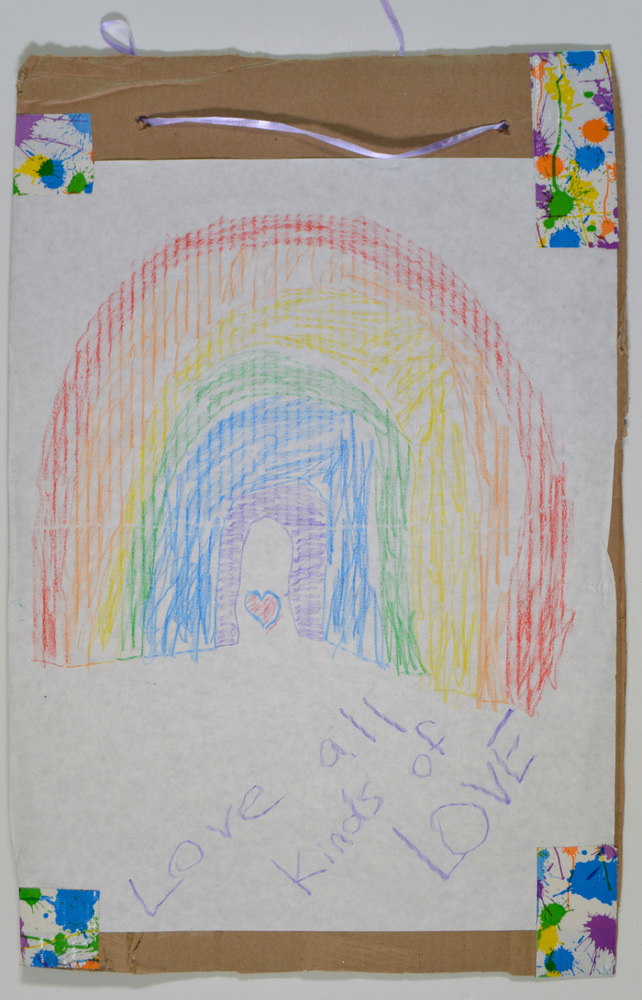 Love all
kinds of
LOVE